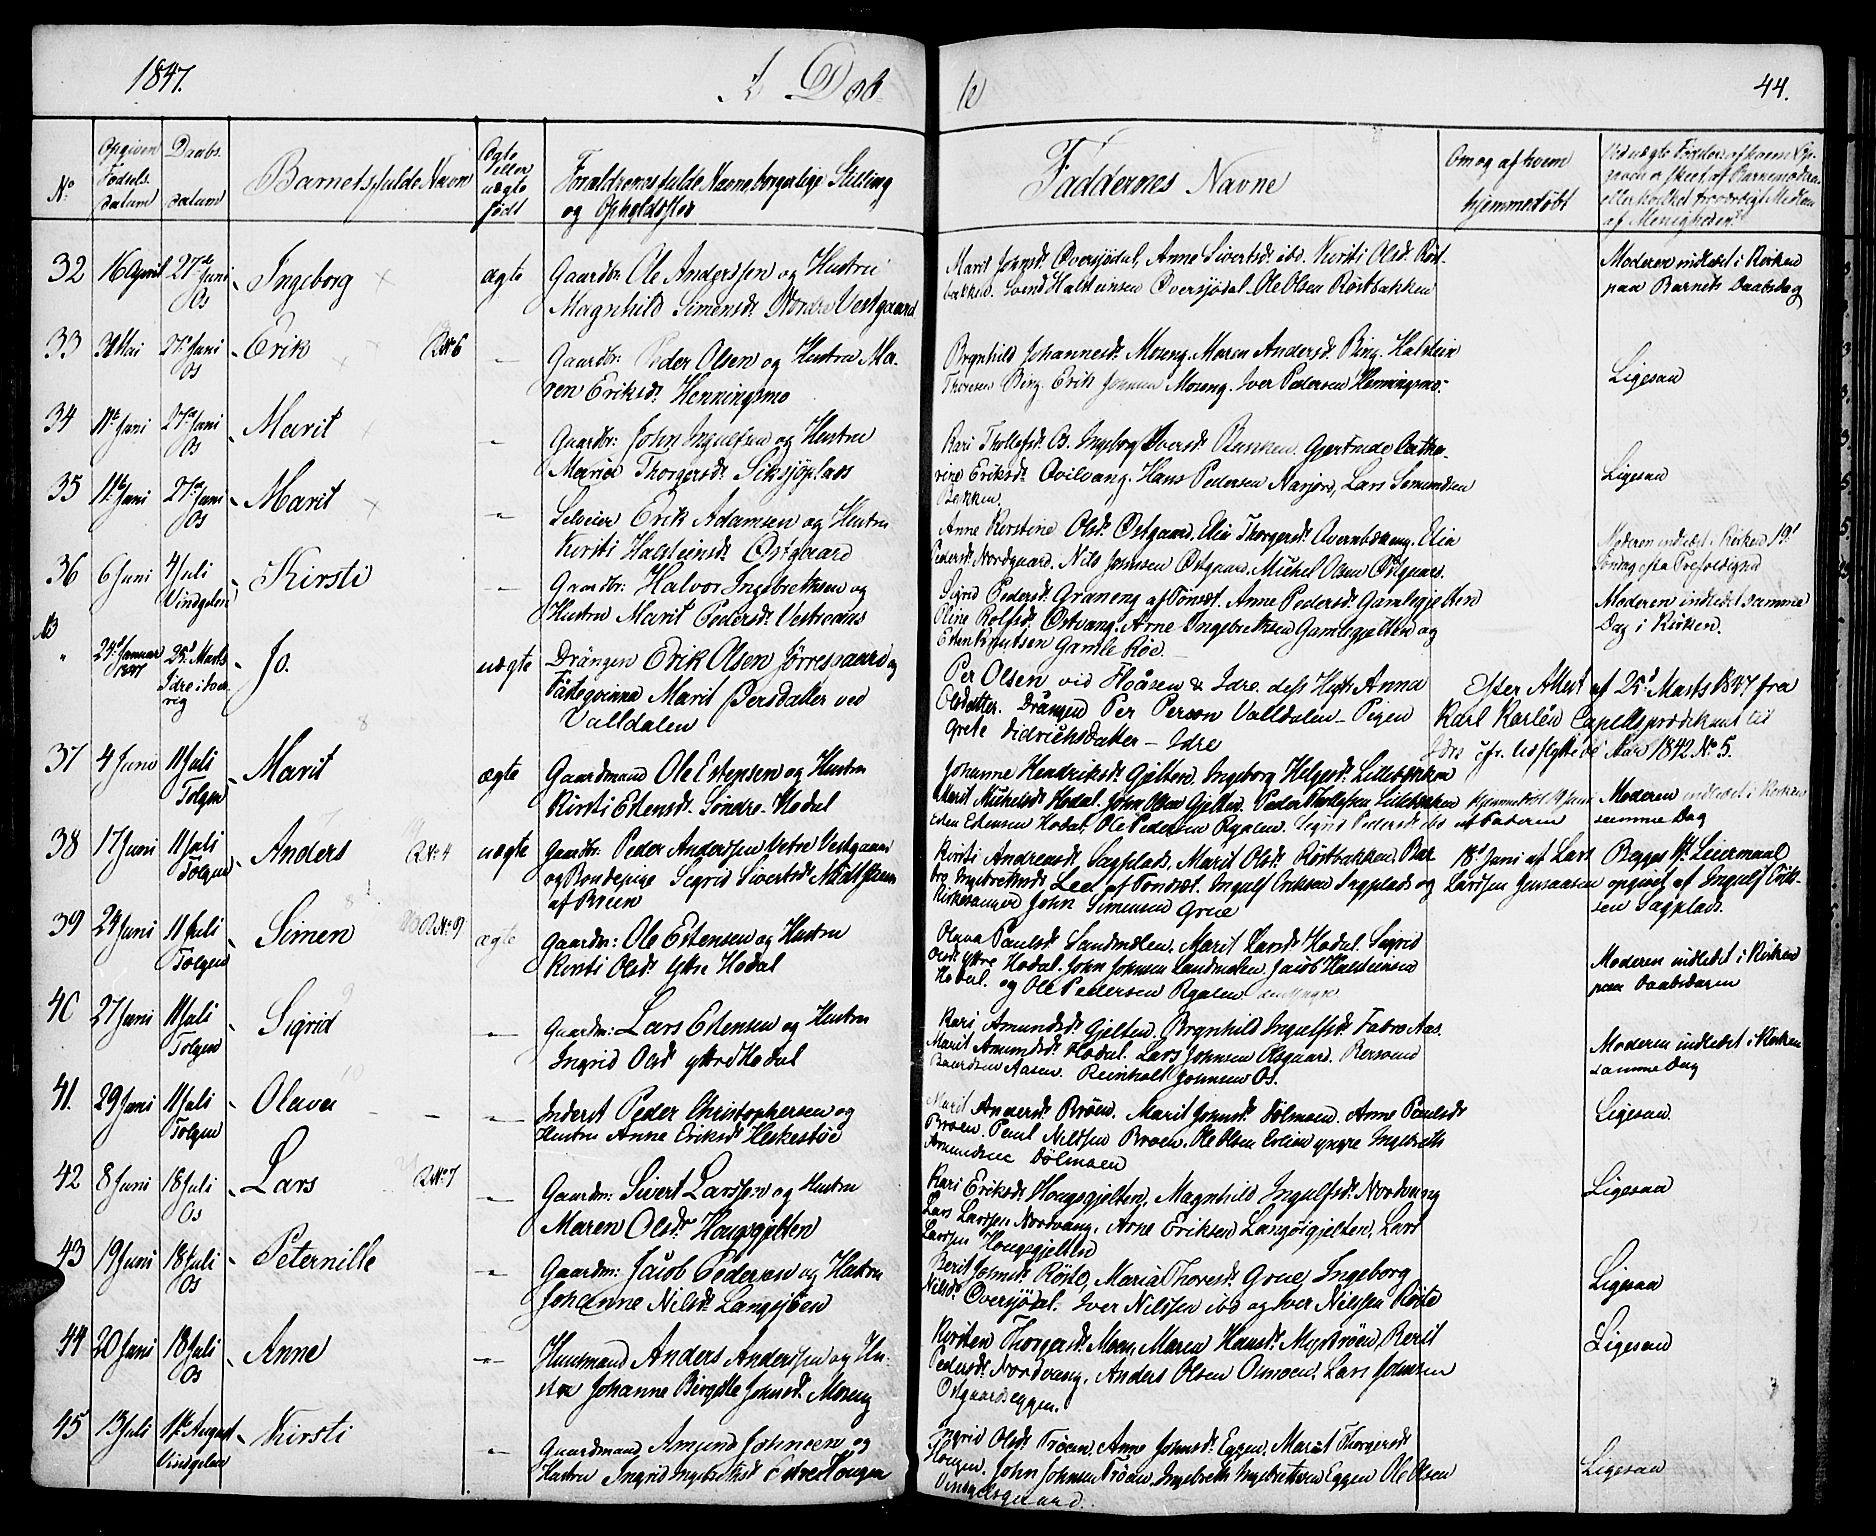 1847.
Døb
44.
No
Opgiven Fødsels datum
Daabs datum
Barnets fulde Navn
Ægte eller uægte født
Forældrenes fulde Navne, borgerlige Stilling og Opholdssted
Faddernes Navne
Om og af hvem hjemmedøbt
32 16 April 27de Juni Os Ingeborg ægte
Gaardbr: Ole Anderssen og Hustru
Magnhild Simensdr. Nordre Vestgaard
Marit Johnsdr. Oversjødal, Anne Sivertsdr. ibd. Kirsti Olsdr. Røst-
bakken. Svend Halsteinsen Oversjødal. Ole Olsen Røstbakken
Moderen indledet i Kirken
paa Barnets Daabsdag
33 Mai 27de Juni Os Erik R No 6 —
Gaardbr: Peder Olsen og Hustru Ma-
ren Eriksdr. Henningsmo
Brynhild Johannesdr. Moseng. Maren Andersdr. Bing. Halstein
Thoresen Bing. Erik Moseng. Iver Pedersen Henningsmo.
Ligesaa
34 11te Juni 27de Juni Os Marit —
Gaardbr: John Ingulfsen og Hustru
Maria Thorgersdr. Siksjøplads
Kari Thollefsdr. Os. Ingeborg Iversdr. Gjertrude Catha-
rine Eriksdr. Qvilvang. Hans Pedersen Narjord, Lars Simundsen
Bakken,
Ligesaa
35 11te Juni 27de Juni Os Marit —
Selveier Erik Adamsen og Hustru
Kirsti Halsteinsdr. Østgaard
Anne Kerstine Olsdr. Østgaard. Elin Thorgersdr. Elin
Pedersdr. Nordgaard. Nils Johnsen Østgaard. Mikkel Olsen Østgaard.
Moderen indledet i Kirken 19de
Søndag efter Trefoldighed
36 6 Juni 4 Juli Vindgelen Kirsti —
Gaardbr: Halvor Ingebretsen og
Hustru Marit Pedersdr. Vestvang
Sigrid Pedersdr. Graneng af Tønset. Anne Pedersdr. Gamlegjelten
Oline Rolfsdr. Østvang. Arne Ingebretsen Gamlegjelten og
Esten Knutsen Gamle Røe
Moderen indledet samme
Dag i Kirken.
24de Januar 1847 25de Marts Idre i Jo. uægte
Drängen Erik Olsen Jørresgaard og
Fästeqvinna Marit Persdatter ved
Valldalen
Per Olsen vid Flåsen & Idre. dess Hustr Anna
Olsdatter. Drängen Per Person Valldalen — Pigen
Grete Didrichsdatter — Idre
Efter Attest af 25de Marts 1847 fra
Karl Karlén Capellsprædikant til
Idre cfr. Udflyttede Mai 1842 No 5.
37 4 Juni 11 Juli Tolgen Marit ægte
Gaardmand Ole Estensen og Hustru
Kirsti Estensdr. Søndre-Hodal
Johanne Hendriksdr. Gjelten. Ingeborg Helgesdr. Lillebakken
Marit Mikkelsdr. Hodal. John Olsen Gjelten. Peder Thollefsen Lillebakken
Esten Estensen Hodal, Ole Pedersen Ryalen. Sigrid Pedersdr. ibd
hjemmedøbt Juni
af Faderen
Moderen indledet i Kirken
samme Dag
38 17 Juni 11 Juli Tolgen Anders R No 4 uægte
Gaardbr: Peder Anderssen Vetre Vestgaard
og Bondepige Sigrid Sivertsdr.
af Brien
Kirsti Andreasdr. Sagplads. Marit Olsdr. Røstbakken, Bar
bro Ingebretsdr. Lee af Tønset. Ingulf Eriksen Sagplads og
Kirkesanger John Simensen Grue
18de Juni af Lars
Larssen Jensaasen
Begges 1ste Leiermaal
opgivet af Ingulf Erik-
sen Sagplads.
39 24 Juni 11 Juli Tolgen Simen R No 9 ægte
Gaardm: Ole Estensen og Hustru
Kirsti Olsdr. Yttre Hodal
Olava Paulsdr. Sandmælen, Marit Larsdr. Hodal. Sigrid
Olsdr. Yttre Hodal. John Johnsen Sandmælen. Jacob Halsteinsen
Hodal. og Ole Pedersen Ryalen den yngre
Moderen indledet i Kirken
paa Daabsdagen
40 27 Juni 11 Juli Tolgen Sigrid —
Gaardm: Lars Estensen og Hustru
Ingrid Olsdr yttre Hodal
Kari Amundsdr. Gjelten. Brynhild Ingulfsdr. Fabroaas.
Marit Amundsdr. Hodal. Lars Johnsen Osgaard. Bersvend
Baardsen Aasen. Reinholt Johnsen Os.
Moderen indledet i Kirken
samme Dag
41. 29 Juni 11 Juli Tolgen Olava —
Inderst Peder Christophersen og
Hustru Anne Eriksdr. Heskestøe
Marit Andersdr. Brøen. Marit Johnsdr. Dølmoen. Anne Paulsdr
Brøen. Paul Nilssen Brøen. Ole Olsen Erlien yngre Ingebreth
Amundsen Dølmoen
Ligesaa
42 8 Juni 18 Juli Os Lars R No 7 —
Gaardm: Sivert Larssen og Hustru
Maren Olsdr. Hougsgjelten
Kari Eriksdr. Hougsgjelten, Magnhild Ingulfsdr. Nordvang
Lars Larssen Nordvang, Arne Eriksen Langøigjelten, Lars
Larssen Hougsgjelten
Ligesaa
43 19 Juni 18 Juli Os Peternille —
Gaardm: Jacob Pedersen og Hustru
Johanne Nilsdr. Langsjøen
Berit Johnsdr. Røste, Maria Thoresdr. Grue, Ingeborg
Nilsdr. Oversjødal. Iver Nilssen ibd og Iver Nilssen Røste
Ligesaa
44 20 Juni 18 Juli Os Anne —
Huusmand Anders Anderssen og Hu-
stru Johanne Birgitte Johnsdr. Moseng
Kirsten Thorgersdr. Moen, Maren Hansdr. Berit
Pedersdr. Nordvang, Anders Olsen Osmoen. Lars Johnsen
Østgaardseggen.
Ligesaa
45 13 Juli 1ste August Vindgelen Kirsti —
Gaardmand Amund Johnsen og
Hustru Ingrid Ingebretsdr. Øvre Hougen
Ingrid Olsdr. Trøen, Anne Johnsdr. Eggen. Marit Thorgersdr
Hougen. John Johnsen Trøen. Ingebreth Ingebretsen Eggen Ole Olsen
Vindgelsgaard.
Ligesaa